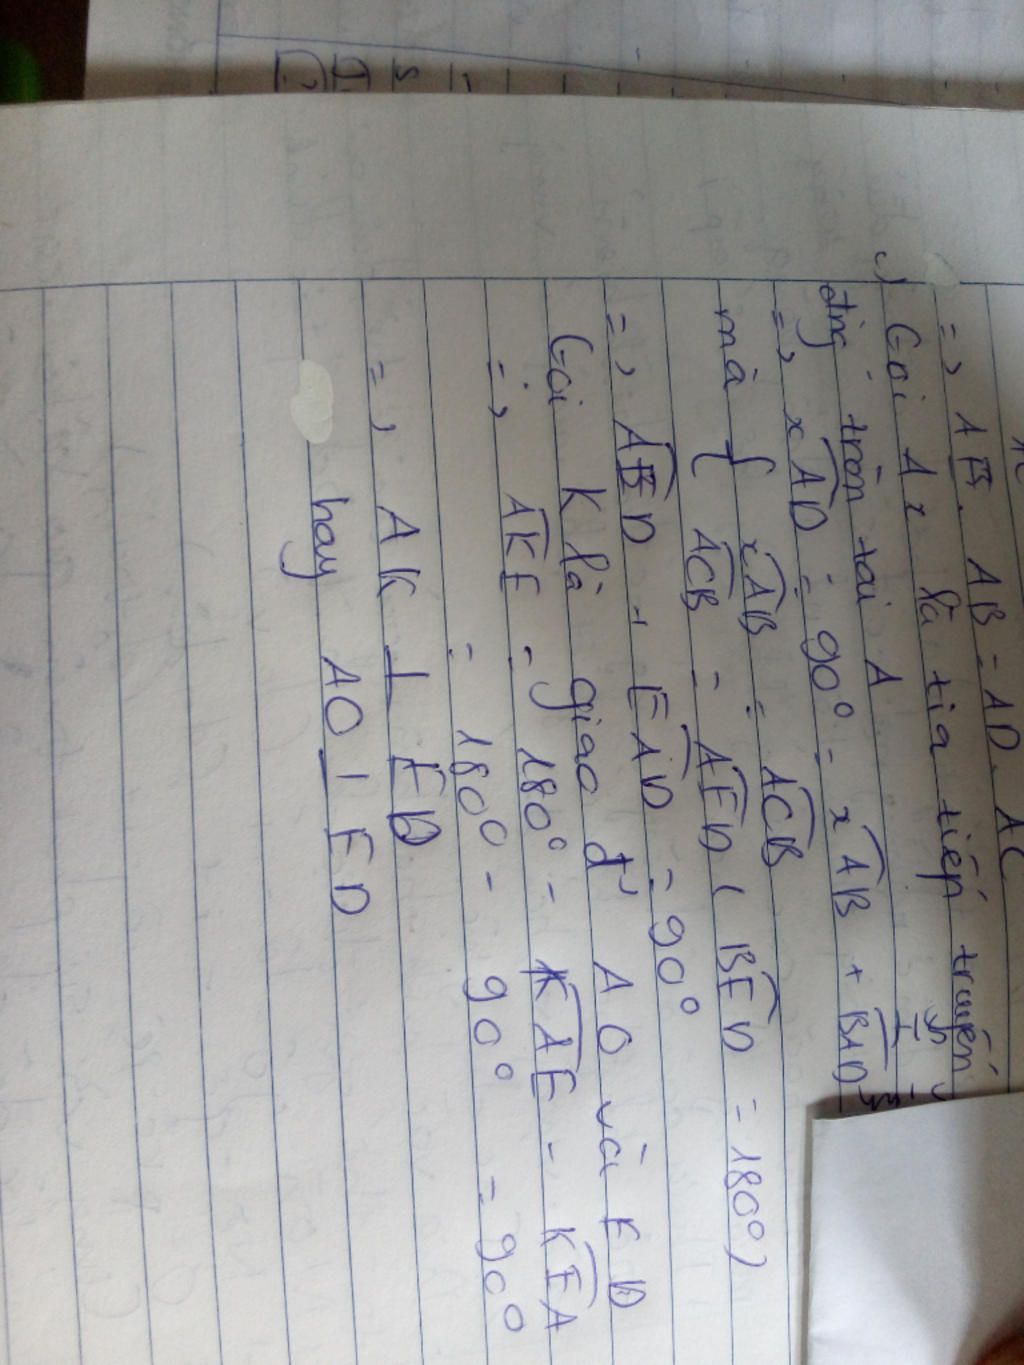 => AE. AB = AD. AC
c) Gọi Ax là tia tiếp tuyến
đtròn tại A
=> xAD = 90° - xAB + BAD
mà { xAB = ACB
{ ACB = AED ( BED = 180°)
=> AED + EAD = 90°
Gọi K là giao đ' AO và ED
=> AKE = 180° - KAE - KEA
= 180° - 90° = 90°
=> AK ⊥ ED
hay AO ⊥ ED